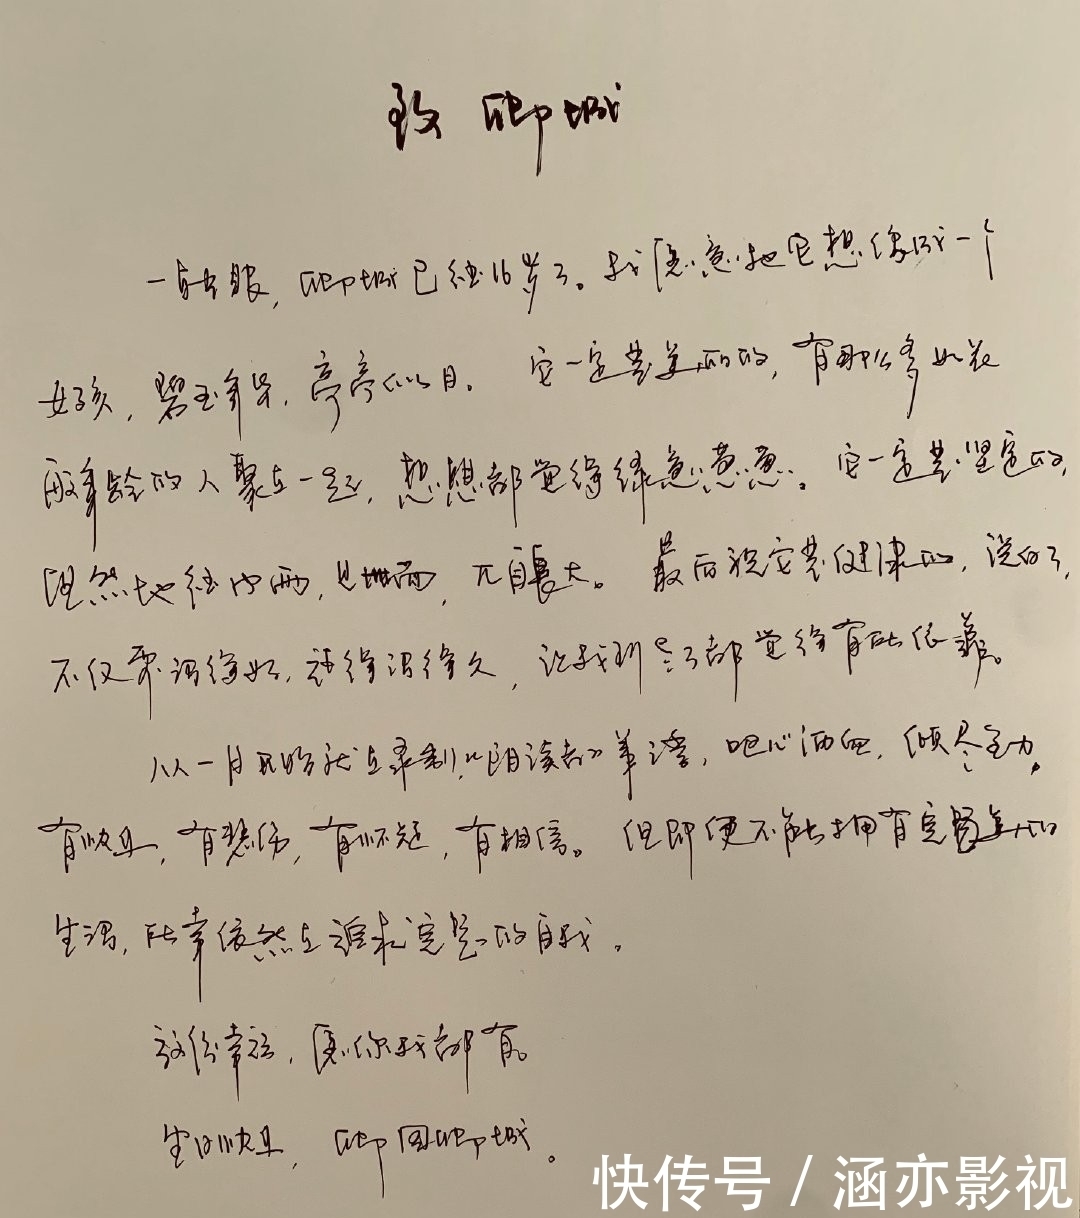 致 卿卿城
一转眼，卿城已经16岁了。我愿意把它想像成一个
女孩，碧玉年华，亭亭如月。它一定是美丽的，有那么多如花
般年龄的人聚在一起，想想都觉得绿意葱葱。它一定是坚定的，
坦然地经风雨，见世面，
最后祝它是健康的，说白了，
不仅要活得好，还得活得久，让我们老了都觉得有所依靠。
从一月开始就在录制《朗读者》第二季，呕心沥血，倾尽全力。
有快乐，有悲伤，有怀疑，有相信。但即便不能拥有完美的
生活，所幸依然在追求完整的自我。
这份幸福，愿你我都有。
生日快乐，
快传号 / 涵亦影视